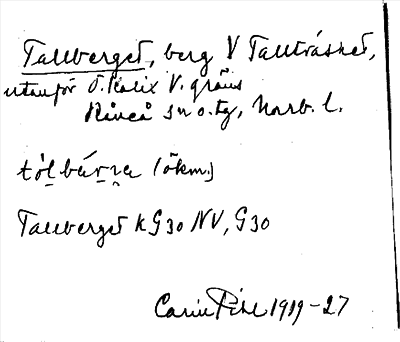 Tallberget, berg V Tallträsket,
utanför Ö. Kalix V. gräns
Råneå sn o. tg, Norrb. l.
tólbárra (ökn.)
Tallberget k G30 NV, G30
Carin Pihl 1919-27